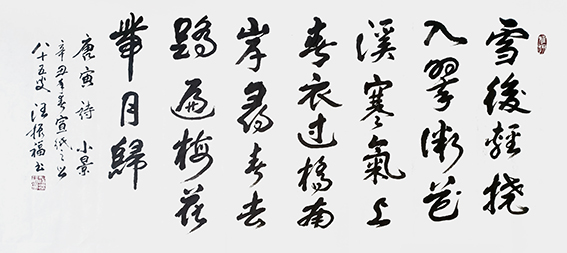 雪後輕橈
入翠微花
溪寒氣上
春衣过橋南
岸尋春去
踏遍梅花
帶月歸
唐寅詩 小景
辛丑年春宣紙之
八十五叟汪振福书